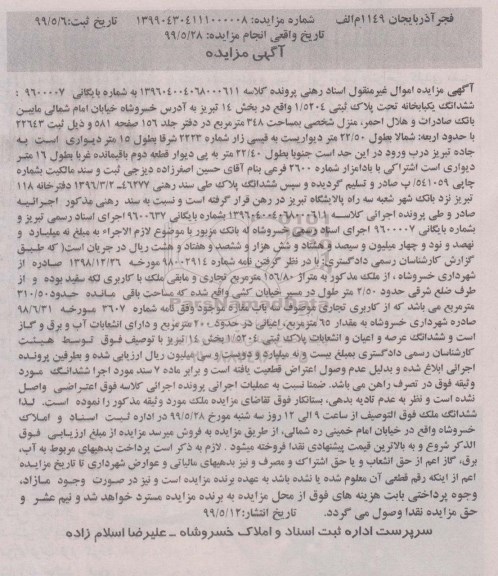 فجر آذربایجان ۱۱۴۹م/الف شماره مزایده: ۱۳۹۹۰۴۳۰۴۱۱۱۰۰۰۰۰۸ تاریخ ثبت: ۹۹/۵/۶
تاریخ واقعی انجام مزایده: ۹۹/۵/۲۸
آگهی مزایده
آگهی مزایده اموال غیرمنقول اسناد رهنی پرونده کلاسه ۱۳۹۶۰۴۰۰۴۰۶۸۰۰۰۶۱۱ به شماره بایگانی ۹۶۰۰۰۰۷ :
ششدانگ یکبابخانه تحت پلاک ثبتی ۱/۵۲۰۴ واقع در بخش ۱۴ تبریز به آدرس خسروشاه خیابان امام شمالی مابین
بانک صادرات و هلال احمر، منزل شخصی بمساحت ۳۴۸ مترمربع در دفتر جلد ۱۵۶ صفحه ۵۸۱ و ذیل ثبت ۲۲۶۴۳
با حدود اربعه: شمالا بطول ۲۲/۵۰ متر دیواریست به قیسی زار شماره ۲۲۲۳ شرقا بطول ۱۵ متر دیواری است به
جاده تبریز درب ورود در این حد است جنوبا بطول ۲۲/۴۰ متر به پی دیوار قطعه دوم باقیمانده غربا بطول ۱۶ متر
دیواری است اشتراکی با بادامزار شماره ۲۶۰۰ فرعی بنام آقای حسین اصغرزاده دیزجی ثبت و سند مالکیت بشماره
چاپی ۵۴۱۰۵۹/ب صادر و تسلیم گردیده و سپس ششدانگ پلاک طی سند رهنی ۴۶۲۷۷ـ۱۳۹۶/۳/۳ دفترخانه ۱۱۸
تبریز نزد بانک شهر شعبه سه راه پالایشگاه تبریز در رهن قرار گرفته است و نسبت به سند رهنی مذکور اجرائیه
صادر و طی پرونده اجرائی کلاسه ۱۳۹۶۰۴۰۰۴۰۶۸۰۰۰۶۱۱ بشماره بایگانی ۹۶۰۰۶۳۷ اجرای اسناد رسمی تبریز و
بشماره بایگانی ۹۶۰۰۰۰۷ اجرای اسناد رسمی خسروشاه له بانک مزبور با موضوع لازم الاجراء به مبلغ نه میلیارد و
نهصد و نود و چهار میلیون و سیصد و هشتاد و شش هزار و ششصد و هفتاد و هشت ریال در جریان است( که طبق
گزارش کارشناسان رسمی دادگستری با در نظر گرفتن نامه شماره ۹۸۰۰۲۹۱۴ مورخه ۱۳۹۸/۱۲/۲۶ صادره از
شهرداری خسروشاه ، از ملک مذکور به متراژ ۱۵۶/۸۰ مترمربع تجاری و مابقی ملک با کاربری لکه سفید بوده و از
طرف ضلع شرقی حدود ۲/۵۰ متر طول در مسیر خیابان کشی واقع شده که مساحت باقی مانده حدود ۳۱۰/۵۰
مترمربع می باشد که از کاربری تجاری موصوف به باب مغازه موجود وفق نامه شماره ۳۶۰۷ مورخه ۹۸/۶/۳۱
صادره شهرداری خسروشاه به مقدار ۶۵ مترمربع، اعیانی در حدود ۲۰۰ مترمربع و دارای انشعابات آب و برق و گاز
است و ششدانگ عرصه و اعیان و انشعابات پلاک ثبتی ۱/۵۲۰۴ بخش ۱۴ تبریز با توصیف فوق توسط هیئت
کارشناسان رسمی دادگستری بمبلغ بیست و نه میلیارد و دویست و سی میلیون ریال ارزیابی شده و بطرفین پرونده
اجرائی ابلاغ شده و بدلیل عدم وصول اعتراض قطعیت یافته است و برابر ماده ۷ سند مورد اجرا ششدانگ مورد
وثیقه فوق در تصرف راهن می باشد. ضمنا نسبت به عملیات اجرائی پرونده اجرائی کلاسه فوق اعتراضی واصل
نشده است و نظر به عدم تادیه بدهی، بستانکار فوق تقاضای مزایده ملک مورد وثیقه مذکور را نموده است. لذا
ششدانگ ملک فوق التوصیف از ساعت ۹ الی ۱۲ روز سه شنبه مورخ ۹۹/۵/۲۸ در اداره ثبت اسناد و املاک
خسروشاه واقع در خیابان امام خمینی ره شمالی، از طریق مزایده به فروش میرسد مزایده از مبلغ ارزیابی فوق
الذکر شروع و به بالاترین قیمت پیشنهادی نقدا فروخته میشود . لازم به ذکر است پرداخت بدهیهای مربوط به آب،
برق، گاز اعم از حق انشعاب و یا حق اشتراک و مصرف و نیز بدهیهای مالیاتی و عوارض شهرداری تا تاریخ مزایده
اعم از اینکه رقم قطعی آن معلوم شده یا نشده باشد به عهده برنده مزایده است و نیز در صورت وجود مازاد،
وجوه پرداختی بابت هزینه های فوق از محل مزایده به برنده مزایده مسترد خواهد شد و نیم عشر و
حق مزایده نقدا وصول می گردد. تاریخ انتشار: ۹۹/۵/۱۲
سرپرست اداره ثبت اسناد و املاک خسروشاه ـ علیرضا اسلام زاده